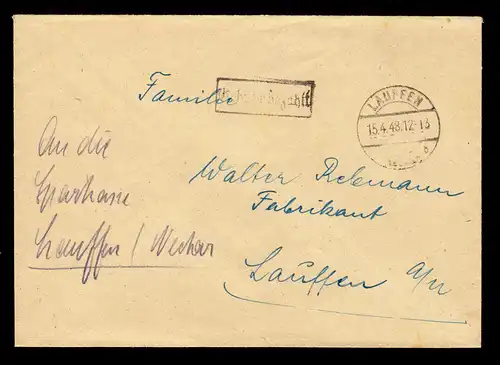 Familie
Gebühr bezahlt
LAUFFEN
15.4.48.12-13
An die
Sparkasse
Lauffen / Neckar
Walter Rebmann
Fabrikant
Lauffen a/N